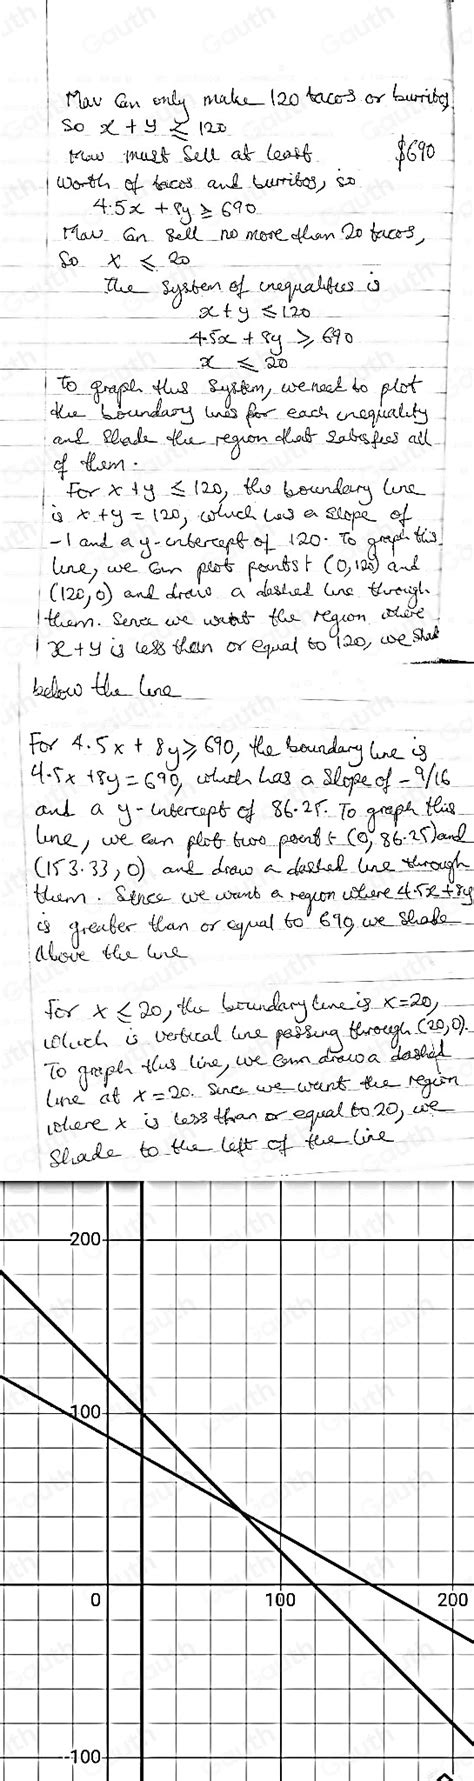 Mav can only make 120 tacos or burritos
so x + y ≤ 120
Mav must sell at least $690
worth of tacos and burritos, so
4.5x + 8y ≥ 690
Mav can sell no more than 20 tacos,
So x ≤ 20
The system of inequalities is
x + y ≤ 120
4.5x + 8y ≥ 690
x ≤ 20
To graph this system, we need to plot
the boundary lines for each inequality
and shade the region that satisfies all
of them.
For x + y ≤ 120, the boundary line
is x + y = 120, which has a slope of
-1 and a y-intercept of 120. To graph this
line, we can plot points t (0,120) and
(120,0) and draw a dashed line through
them. Since we want the region where
x + y is less than or equal to 120, we shad
below the line
For 4.5x + 8y ≥ 690, the boundary line is
4.5x + 8y = 690, which has a slope of -9/16
and a y-intercept of 86.25. To graph this
line, we can plot two point t (0, 86.25) and
(153.33, 0) and draw a dashed line through
them. Since we want a region where 4.5x + 8y
is greater than or equal to 690, we shade
above the line
For x ≤ 20, the boundary line is x = 20,
which is vertical line passing through (20,0).
To graph this line, we can draw a dashed
line at x = 20. Since we want the region
where x is less than or equal to 20, we
shade to the left of the line
200
100
0
100
200
-100